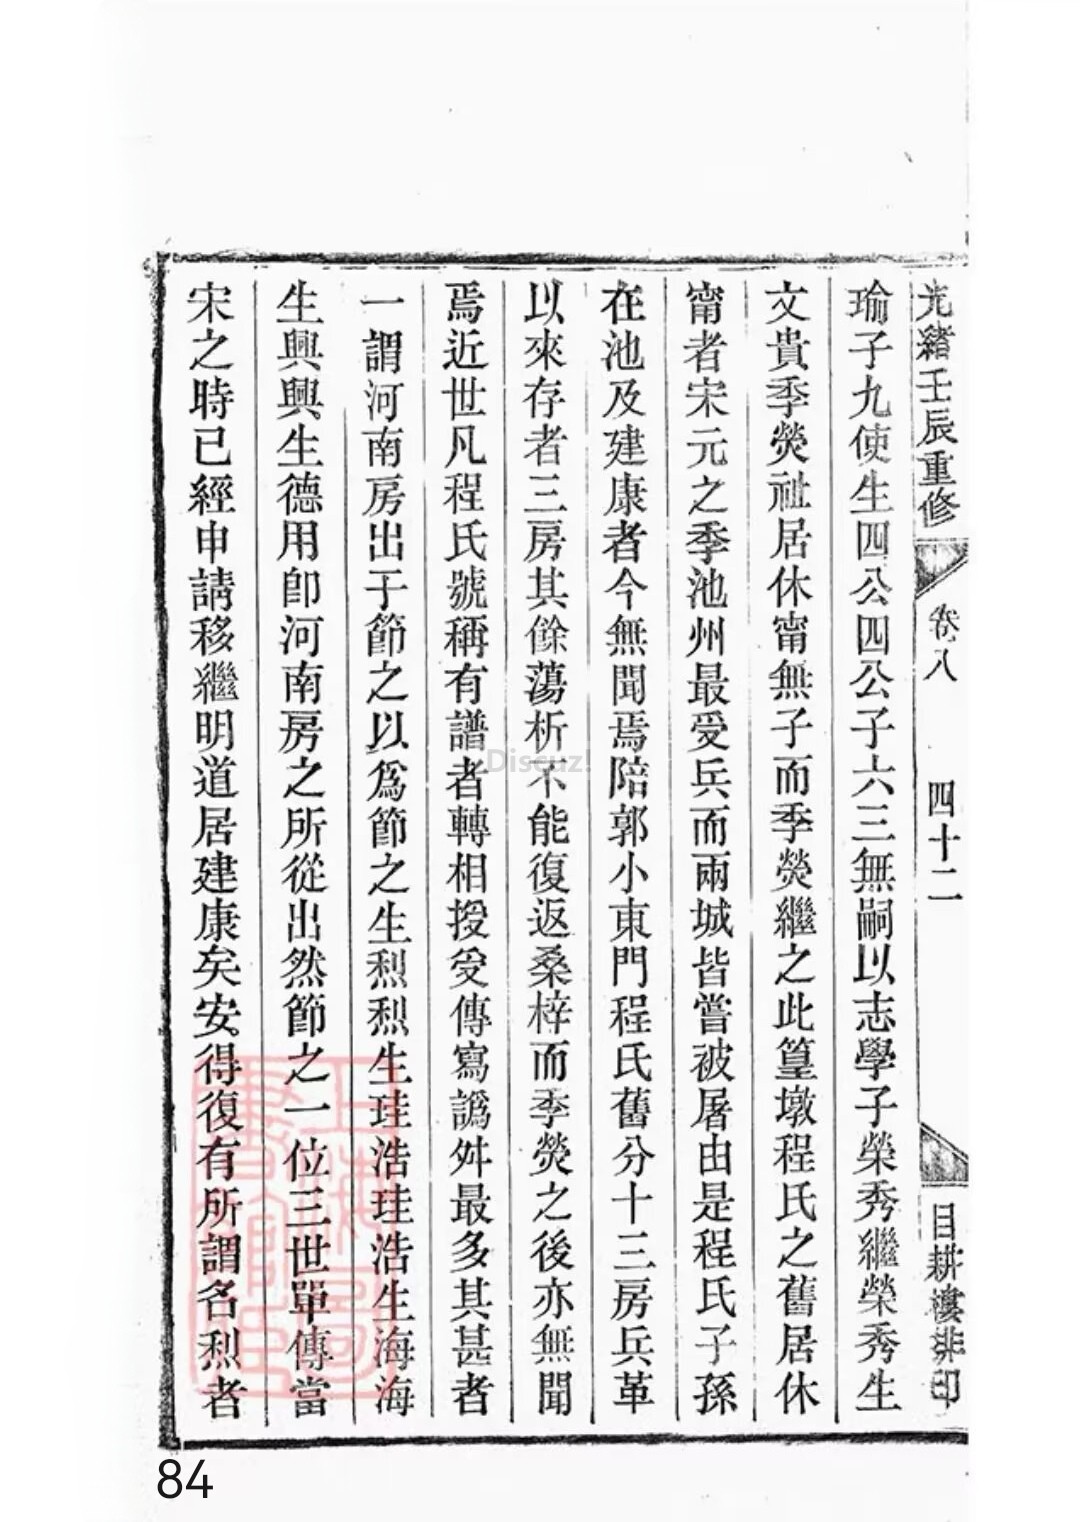 光緒壬辰重修
卷八
四十二
目耕樓排印
瑜子九使生四公四公子六三無嗣以志學子榮秀繼榮秀生
文貴季熒祉居休甯無子而季熒繼之此篁墩程氏之舊居休
甯者宋元之季池州最受兵而兩城皆嘗被屠由是程氏子孫
在池及建康者今無聞焉陪郭小東門程氏舊分十三房兵革
以來存者三房其餘蕩析不能復返桑梓而季熒之後亦無聞
焉近世凡程氏號稱有譜者轉相授受傳寫譌舛最多其甚者
一謂河南房出于節之以爲節之生烈烈生珪浩珪浩生海海
生興興生德用卽河南房之所從出然節之一位三世單傳當
宋之時已經申請移繼明道居建康矣安得復有所謂名烈者
上海圖書館藏
Discuz!
84